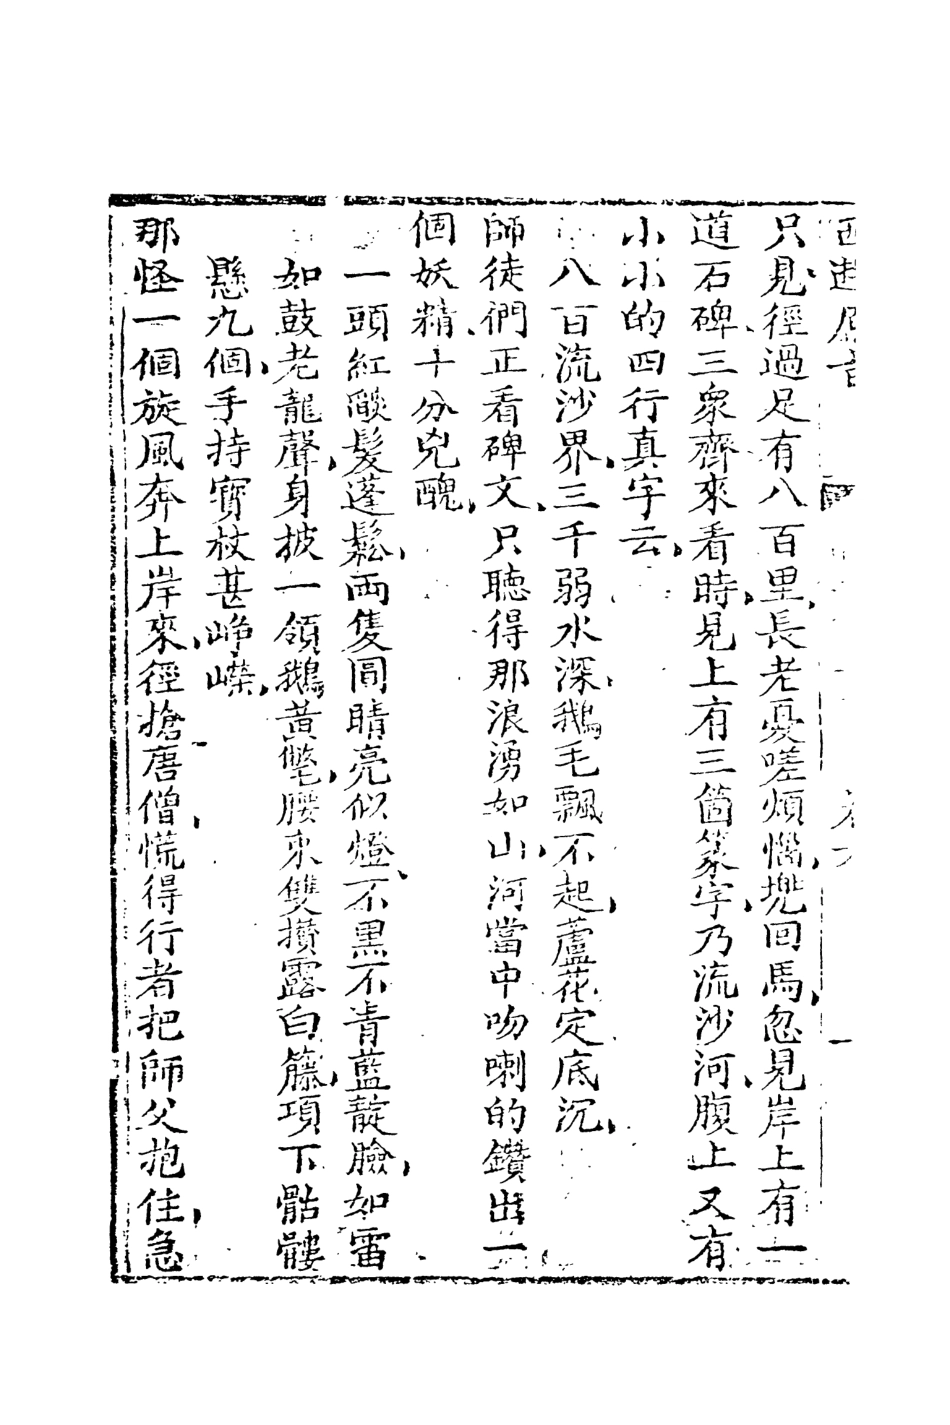 只見徑過足有八百里、長老憂嗟煩惱、兠回馬、忽見岸上有一
道石碑、三衆齊來看時、見上有三箇篆字、乃流沙河、腹上又有
小小的四行真字云、
八百流沙界、三千弱水深、鵝毛飄不起、蘆花定底沉、
師徒們正看碑文、只聽得那浪湧如山、河當中吻喇的鑽出一
個妖精、十分兇醜、
一頭紅𦦨髮蓬鬆、兩隻圓睛亮似燈、不黑不青藍靛臉、如雷
如鼓老龍聲、身披一領鵝黃氅、腰束雙攢露白籐、項下骷髏
懸九個、手持寶杖甚崢嶸、
那怪一個旋風奔上岸來、徑搶唐僧、慌得行者把師父抱住、急